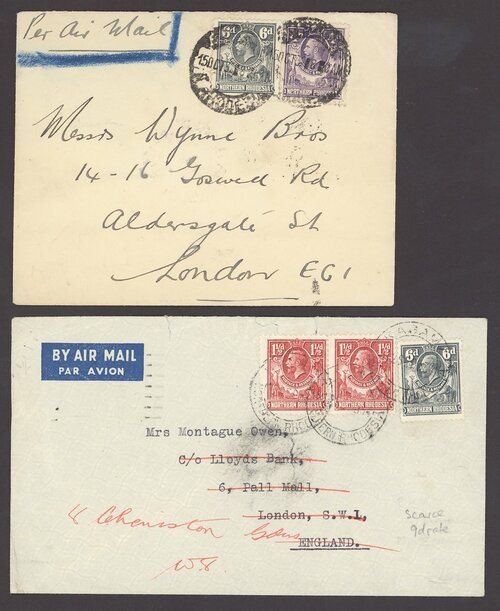 Per Air Mail
6d 6d
NORTHERN RHODESIA NORTHERN RHODESIA
Messrs Wynne Bros
14-16 Goswell Rd
Aldersgate St
London EC1
BY AIR MAIL
PAR AVION
1½d 1½d 6d 6d
NORTHERN RHODESIA NORTHERN RHODESIA NORTHERN RHODESIA
Mrs Montague Owen,
C/o Lloyds Bank,
6, Pall Mall,
London, S.W.1,
ENGLAND.
4 Cheniston Gdns
W8
Scarce
9d rate